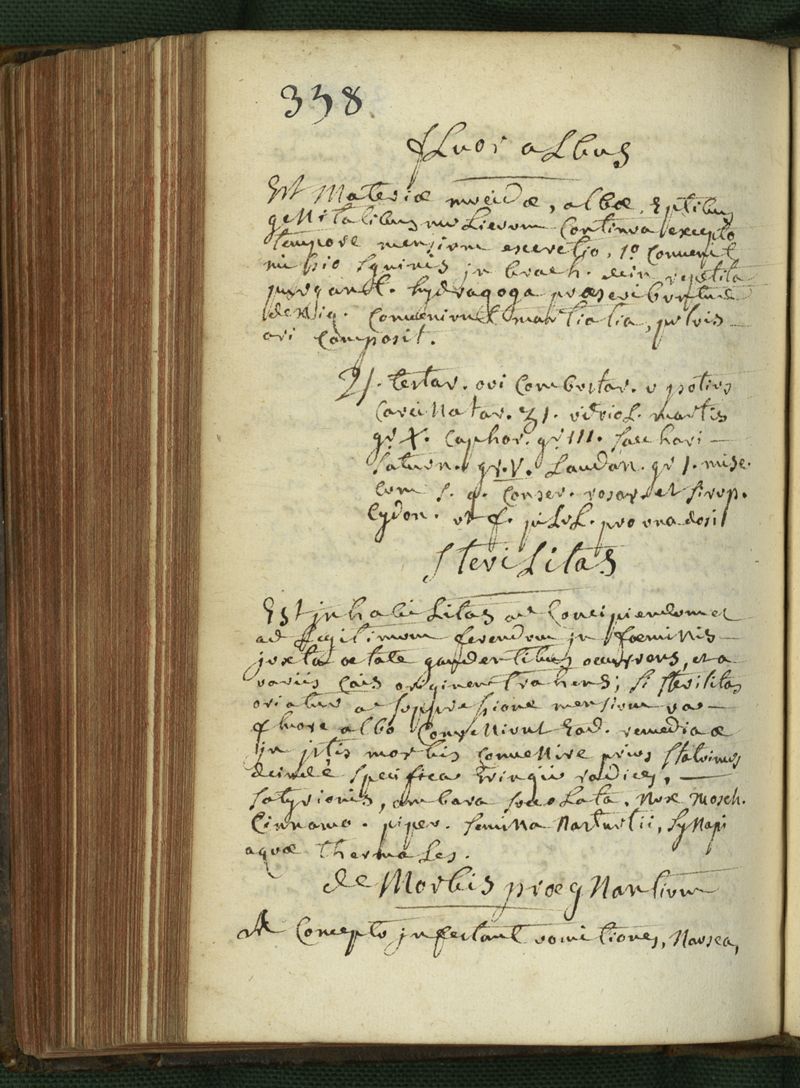 338
fluor albus
Est Materiæ mucidæ, albæ, e ptibus
genitalibus mulierum continua excepto
tempore mensium excretio, 1o convenit
missio sguinis in brach. dein repetita
purgant. hydragoga præscribuntur
deniq. conveniunt martialia, pulvis
ori composit.
♃. testar. ovi combustar. v potius
carcinatar. ʒ1. vitriol. martis
gr X. caphor. gr III. sacchari
saturn. gr. V. Laudan. gr 1. misce.
cum s. q. conser. rosar. et sirup.
Cydon. ut f. pilul. pro una dosi
Sterilitas
Est inhabilitas ad concipiendum et
ad legitimum ferendum in fæminis
juxta ætate gaudentibus occurrens, et a
variis cais originem trahens; si sterilitas
oriatur a suppressione mensium va
fluore albo conveniunt ead. remedia
in iptis morbis convenire prius statuimus
deinde specifica eringii radices,
satyrionis, ambara socolata, Nux Mosch.
Cinnamo. piper. semina Nasturtii, synapi
aquæ thermales.
de Morbis prægnantium
A conceptu infestant vomitiones, Nausea,